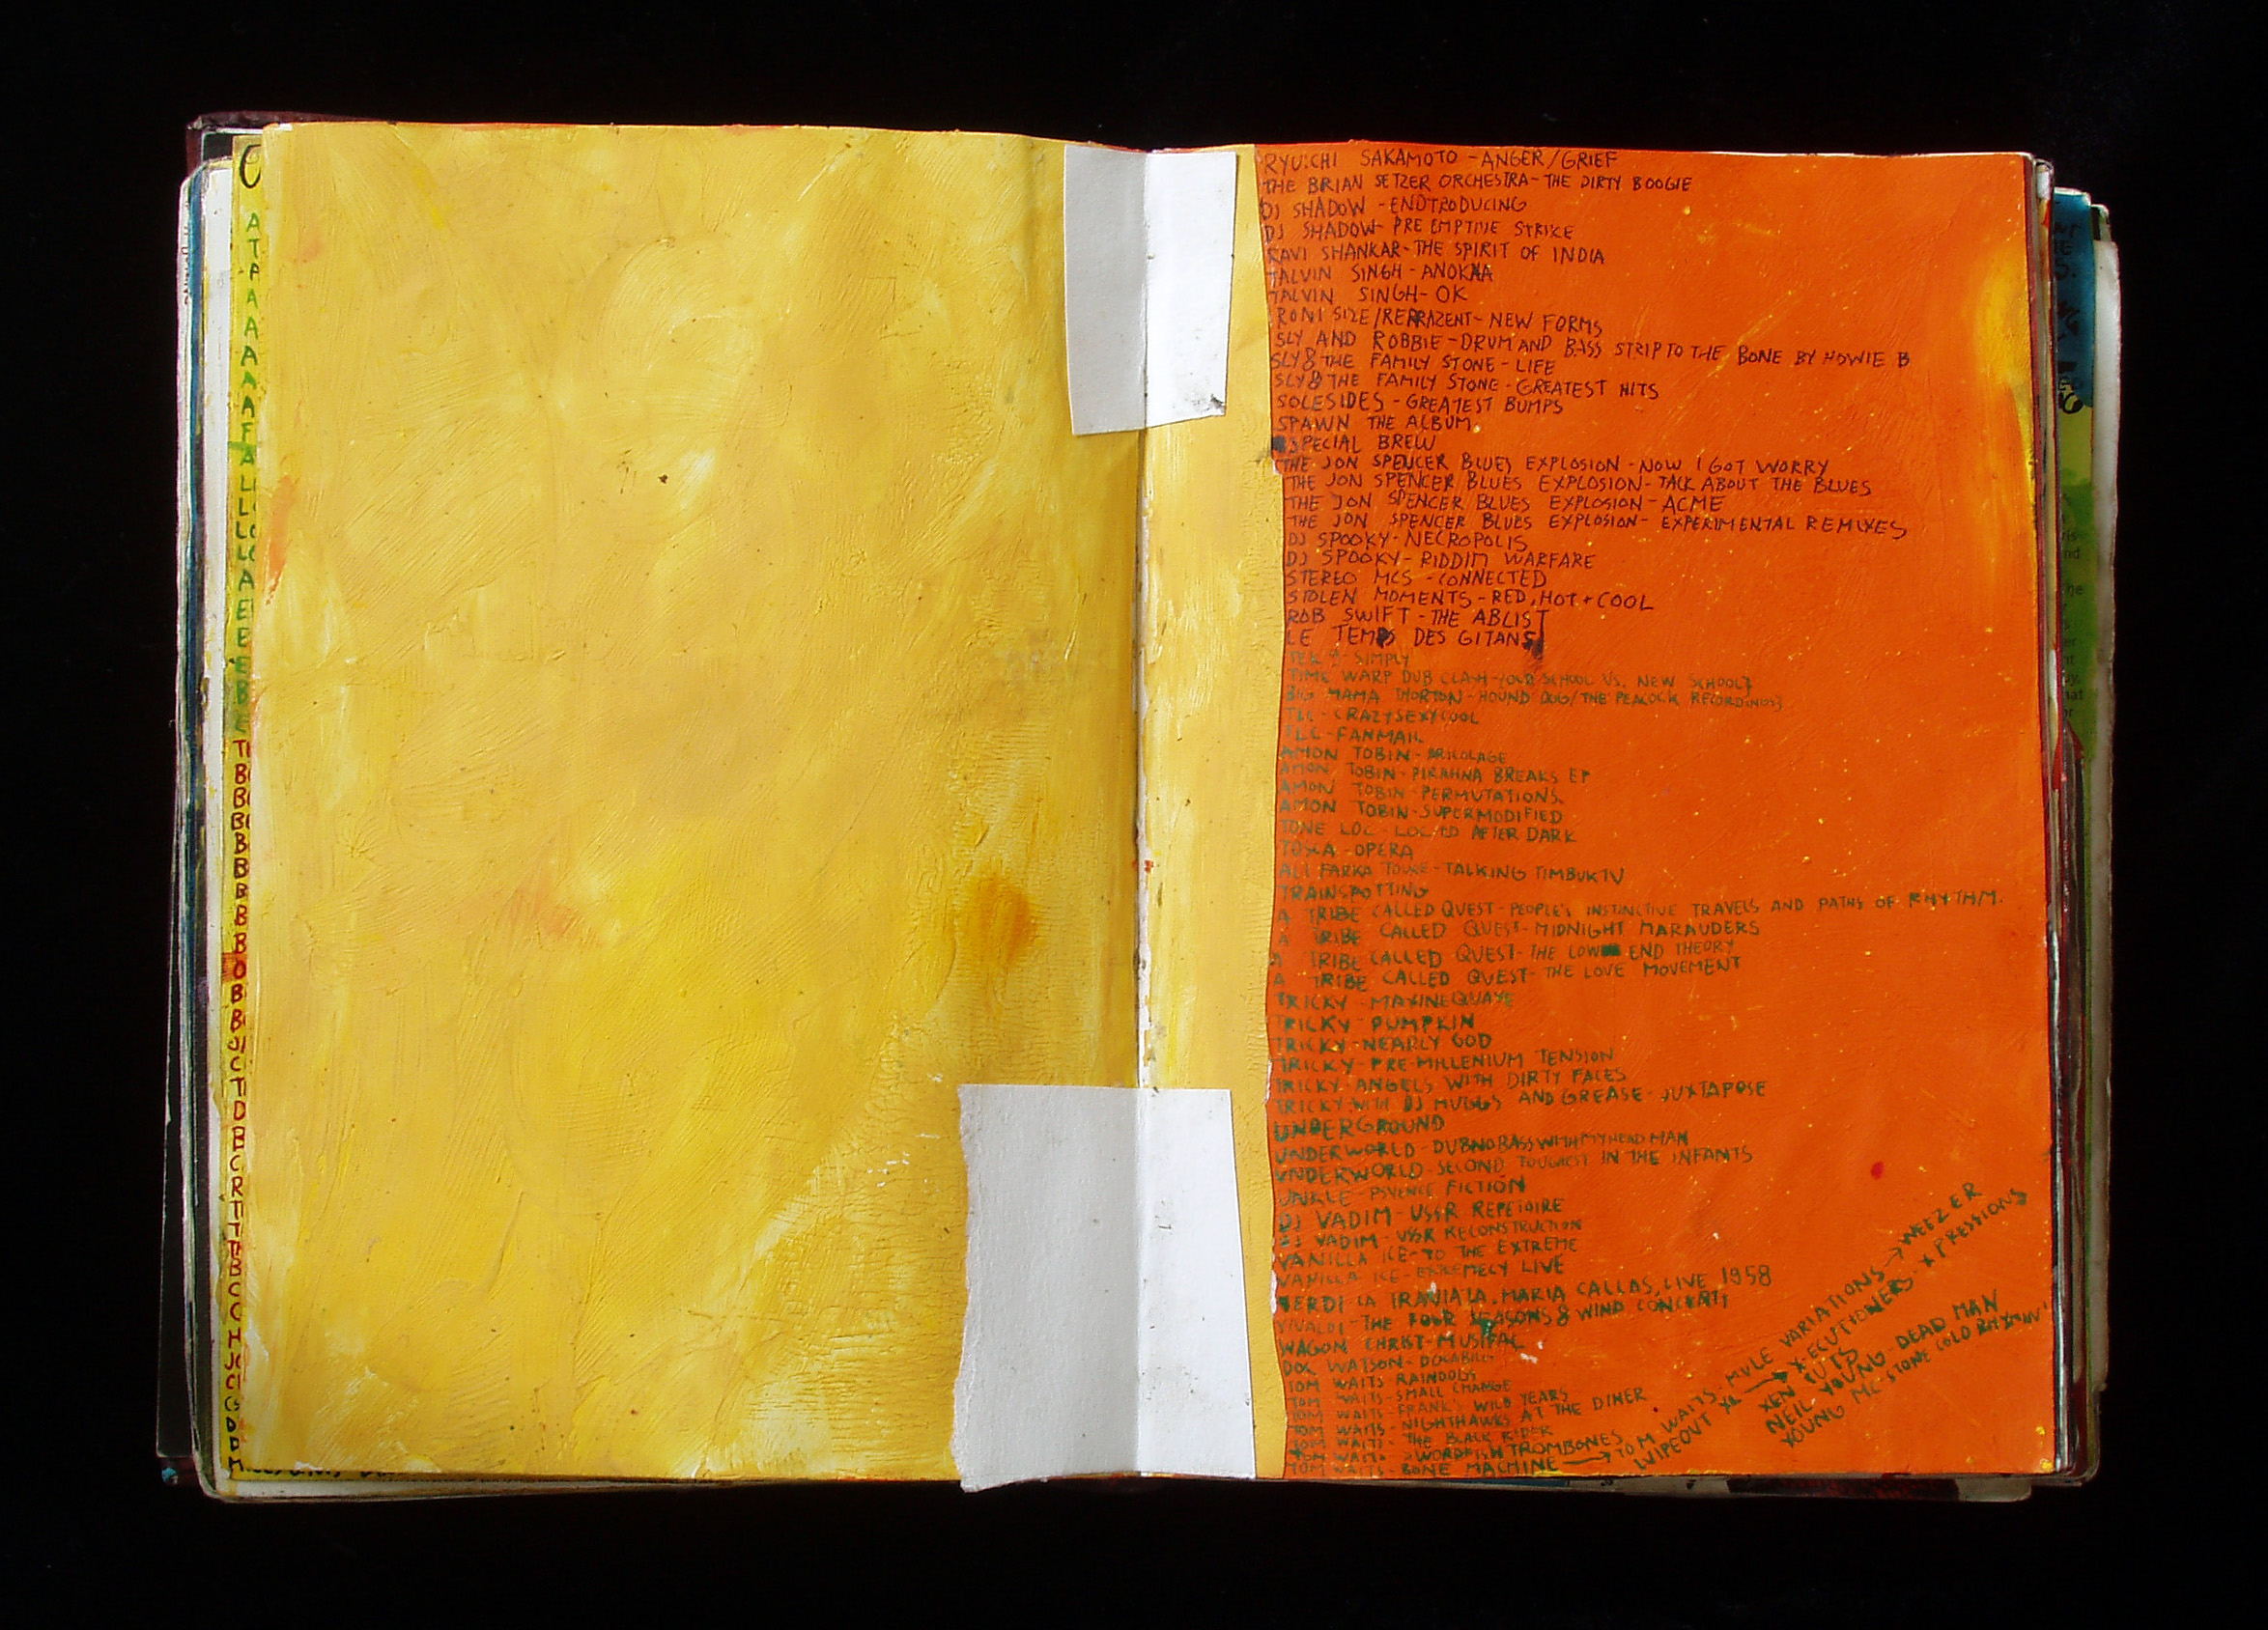 RYUICHI SAKAMOTO - ANGER/GRIEF
THE BRIAN SETZER ORCHESTRA - THE DIRTY BOOGIE
DJ SHADOW - ENDTRODUCING
DJ SHADOW - PRE EMPTIVE STRIKE
RAVI SHANKAR - THE SPIRIT OF INDIA
TALVIN SINGH - ANOKHA
TALVIN SINGH - OK
RONI SIZE/REPRAZENT - NEW FORMS
SLY AND ROBBIE - DRUM AND BASS STRIP TO THE BONE BY HOWIE B
SLY & THE FAMILY STONE - LIFE
SLY & THE FAMILY STONE - GREATEST HITS
SOLESIDES - GREATEST BUMPS
SPAWN THE ALBUM
SPECIAL BREW
THE JON SPENCER BLUES EXPLOSION - NOW I GOT WORRY
THE JON SPENCER BLUES EXPLOSION - TALK ABOUT THE BLUES
THE JON SPENCER BLUES EXPLOSION - ACME
THE JON SPENCER BLUES EXPLOSION - EXPERIMENTAL REMIXES
DJ SPOOKY - NECROPOLIS
DJ SPOOKY - RIDDIM WARFARE
STEREO MCS - CONNECTED
STOLEN MOMENTS - RED, HOT + COOL
ROB SWIFT - THE ABLIST
LE TEMPS DES GITANS
TEK 9 - SIMPLY
TIME WARP DUB CLASH - (OLD SCHOOL VS. NEW SCHOOL)
BIG MAMA THORTON - HOUND DOG/THE PEACOCK RECORDINGS
TLC - CRAZYSEXYCOOL
TLC - FANMAIL
AMON TOBIN - BRICOLAGE
AMON TOBIN - PIRAHNA BREAKS EP
AMON TOBIN - PERMUTATIONS
AMON TOBIN - SUPERMODIFIED
TONE LOC - LOC-ED AFTER DARK
TOSCA - OPERA
ALI FARKA TOURE - TALKING TIMBUKTU
TRAINSPOTTING
A TRIBE CALLED QUEST - PEOPLE'S INSTINCTIVE TRAVELS AND PATHS OF RHYTHM.
A TRIBE CALLED QUEST - MIDNIGHT MARAUDERS
A TRIBE CALLED QUEST - THE LOW END THEORY
A TRIBE CALLED QUEST - THE LOVE MOVEMENT
TRICKY - MAXINEQUAYE
TRICKY - PUMPKIN
TRICKY - NEARLY GOD
TRICKY - PRE-MILLENIUM TENSION
TRICKY - ANGELS WITH DIRTY FACES
TRICKY WITH DJ MUGGS AND GREASE - JUXTAPOSE
UNDERGROUND
UNDERWORLD - DUBNOBASSWITHMYHEADMAN
UNDERWORLD - SECOND TOUGHEST IN THE INFANTS
UNKLE - PSYENCE FICTION
DJ VADIM - USSR REPETOIRE
DJ VADIM - USSR RECONSTRUCTION
VANILLA ICE - TO THE EXTREME
VANILLA ICE - EXTREMELY LIVE
VERDI - LA TRAVIATA, MARIA CALLAS, LIVE 1958
VIVALDI - THE FOUR SEASONS & WIND CONCERTI
WAGON CHRIST - MUSIPAL
DOC WATSON - DOCABILLY
TOM WAITS RAINDOGS
TOM WAITS - SMALL CHANGE
TOM WAITS - FRANK'S WILD YEARS
TOM WAITS - NIGHTHAWKS AT THE DINER
TOM WAITS - THE BLACK RIDER
TOM WAITS - SWORDFISH TROMBONES
TOM WAITS - BONE MACHINE → TOM WAITS - MULE VARIATIONS → WEEZER
WIPEOUT XL → X-ECUTIONERS - X PRESSIONS
XEN CUTS
NEIL YOUNG - DEAD MAN
YOUNG MC - STONE COLD RHYMIN'